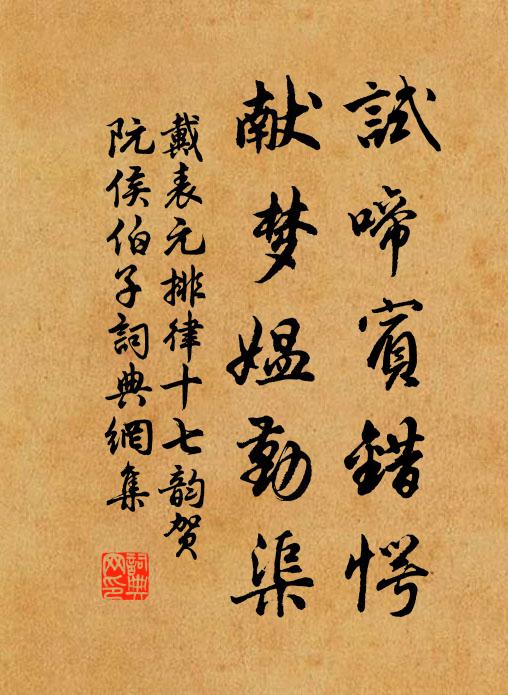 試啼賓錯愕
献梦媪勤渠
戴表元排律十七韵贺
阮侯伯子詞典網集
詞典
网印